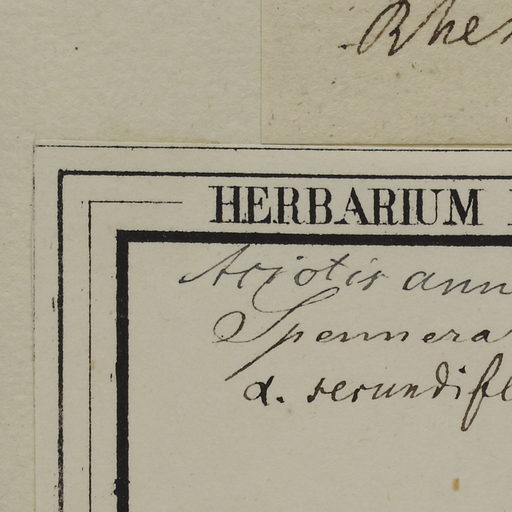 Rhe
HERBARIUM
Acjotis ann
Spennera
α. secundifl